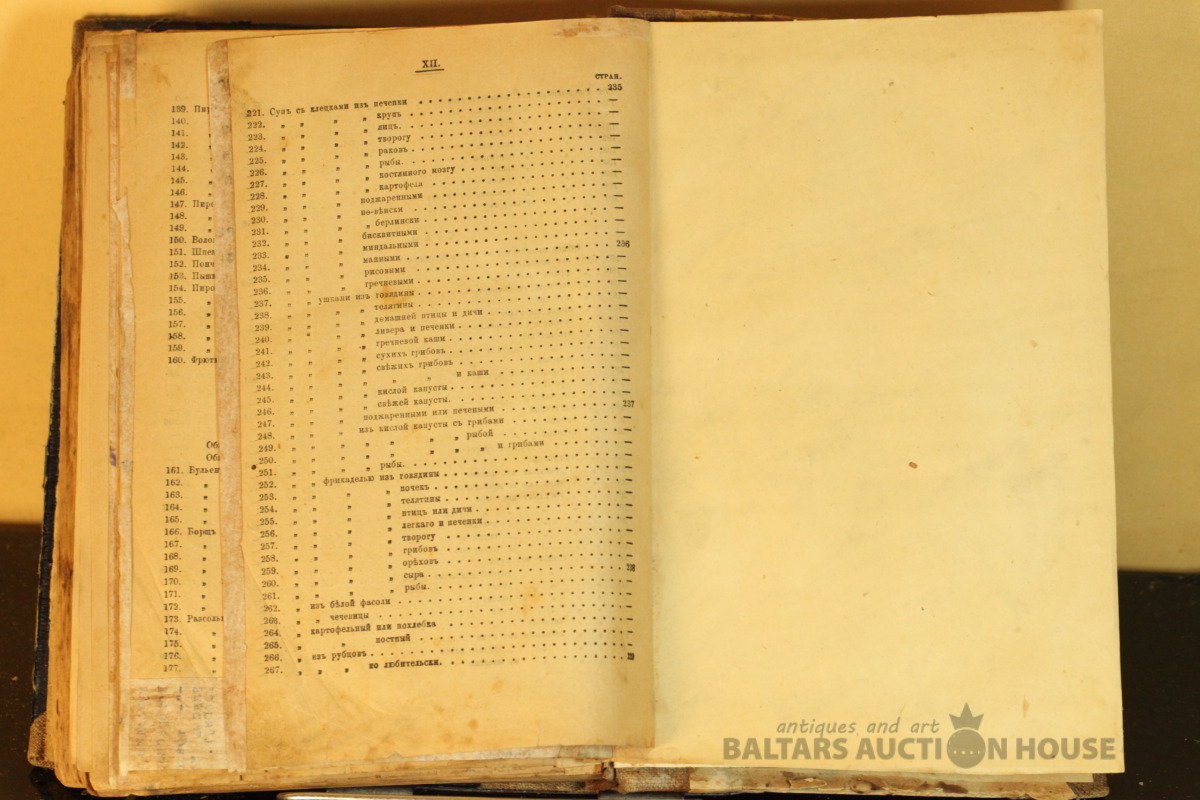 XII.
СТРАН.
221. Супъ съ клецками изъ печенки 235
222. „ „ „ „ крупъ —
223. „ „ „ „ яицъ. —
224. „ „ „ „ творогу —
225. „ „ „ „ раковъ —
226. „ „ „ „ рыбы. —
227. „ „ „ „ костяного мозгу —
228. „ „ „ „ картофеля —
229. „ „ „ поджаренными —
230. „ „ „ по-вѣнски —
231. „ „ „ „ берлински —
232. „ „ „ бисквитными —
233. „ „ „ миндальными 236
234. „ „ „ манными —
235. „ „ „ рисовыми —
236. „ „ „ гречневыми —
237. „ „ ушками изъ говядины —
238. „ „ „ „ телятины —
239. „ „ „ „ домашней птицы и дичи —
240. „ „ „ „ ливера и печенки —
241. „ „ „ „ гречневой каши —
242. „ „ „ „ сухихъ грибовъ —
243. „ „ „ „ свѣжихъ грибовъ —
244. „ „ „ „ „ „ и каши —
245. „ „ „ „ кислой капусты —
246. „ „ „ „ свѣжей капусты. 237
247. „ „ „ поджаренными или печеными —
248. „ „ „ изъ кислой капусты съ грибами —
249. „ „ „ „ „ „ „ рыбой —
250. „ „ „ „ „ „ „ „ и грибами —
251. „ „ „ „ рыбы. —
252. „ „ фрикаделью изъ говядины —
253. „ „ „ „ почекъ —
254. „ „ „ „ телятины —
255. „ „ „ „ птицъ или дичи —
256. „ „ „ „ легкаго и печенки —
257. „ „ „ „ творогу —
258. „ „ „ „ грибовъ —
259. „ „ „ „ орѣховъ —
260. „ „ „ „ сыра 238
261. „ „ „ „ рыбы. —
262. „ изъ бѣлой фасоли —
263. „ „ чечевицы —
264. „ картофельный или похлебка —
265. „ „ постный —
266. „ изъ рубцовъ —
267. „ „ „ по любительски.
139. Пир
140. „
141. „
142. „
143. „
144. „
145. „
146. „
147. Пиро
148. „
149. „
150. Воло
151.
152.
153. Пышк
154. Пиро
155. „
156. „
157. „
158. „
159. „
160. Фрютк
Об
Об
161. Бульон
162. „
163. „
164. „
165. „
166. Борщъ
167. „
168. „
169. „
170. „
171. „
172. „
173. Разсоль
174. „
175. „
176. „
177. „
antiques and art
BALTARS AUCTION HOUSE